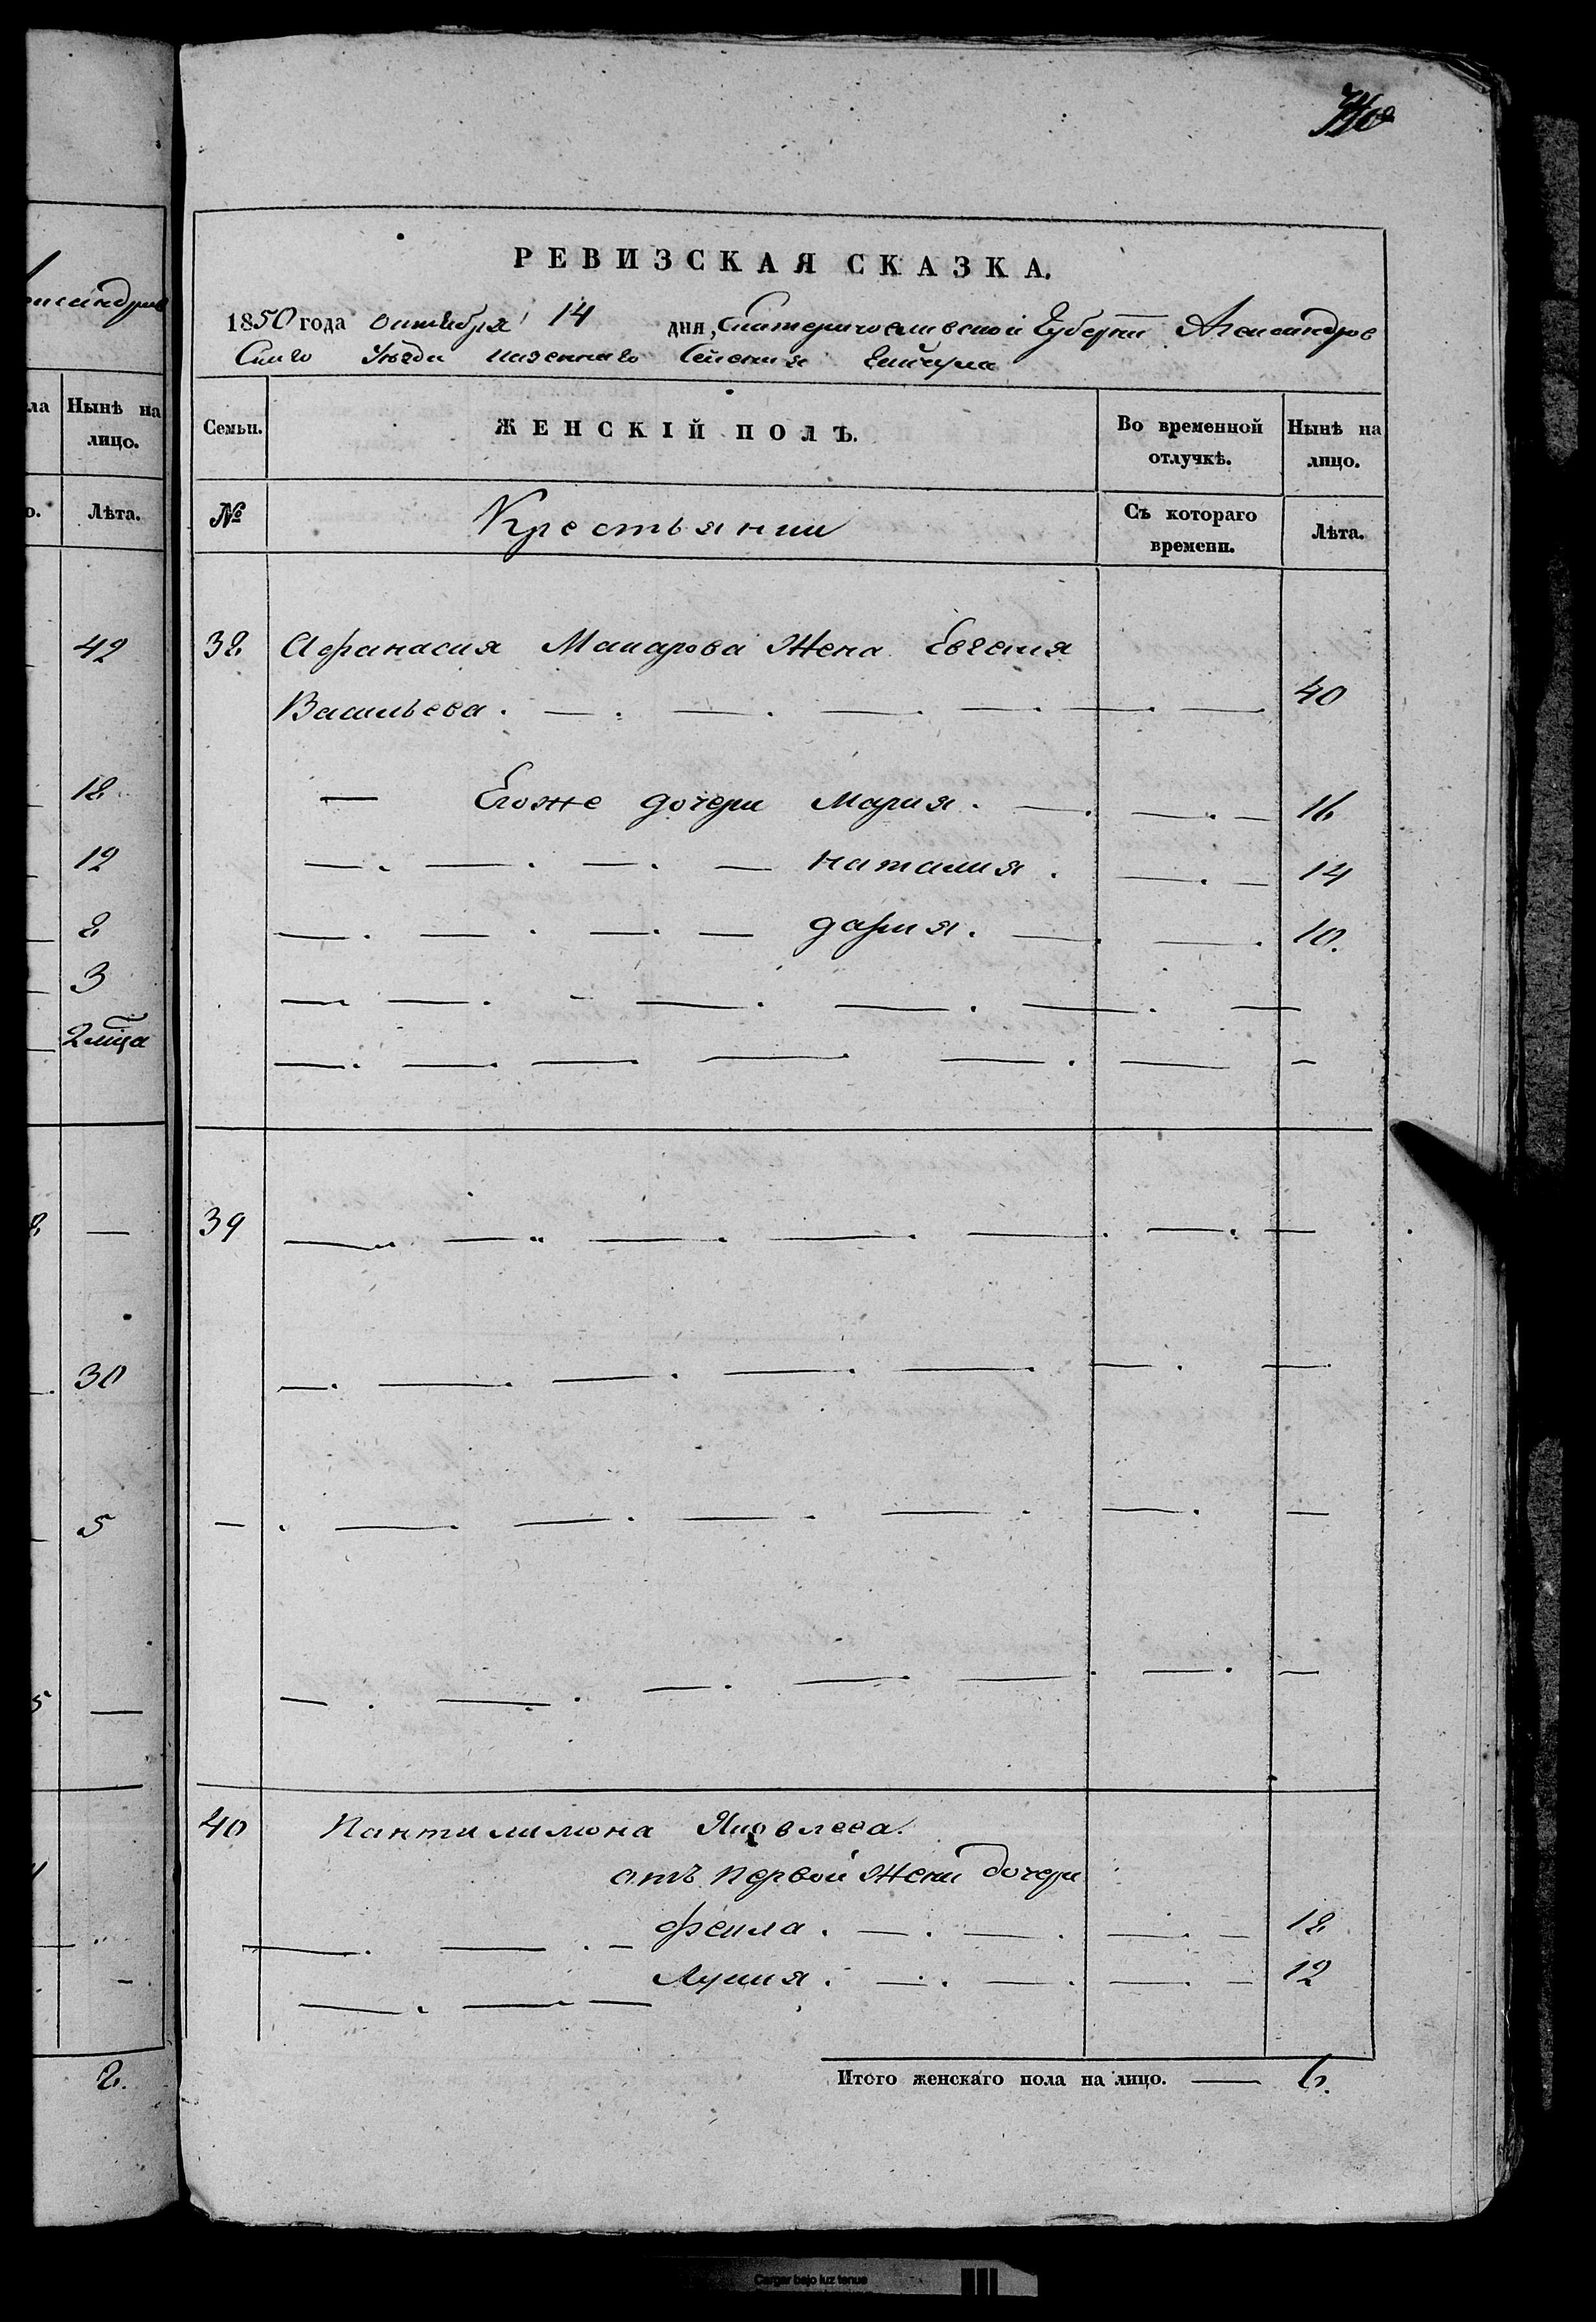 александров
ла
Нынѣ на
лицо.
о.
Лѣта.
42
18
12
8
3
2 мца
8
30
5
5
2.
РЕВИЗСКАЯ СКАЗКА.
1850 года октября 14 дня, Екатеринославской Губерніи Александров
скаго Уѣзда казеннаго Селенія
Семьи.
ЖЕНСКІЙ ПОЛЪ.
Во временной
отлучкѣ.
Нынѣ на
лицо.
№
Крестьянки
Съ котораго
времени.
Лѣта.
38 Афанасия Макарова Жена Евгения
Васильева. 40
Егоже дочери Мария. 16
наталия. 14
дария. 10.
39
40 Пантилимона Яковлева.
отъ первой Жены дочери
фекла. 18
Лукия. 12
Итого женскаго пола на лицо. — 6.
Cargar bajo luz tenue